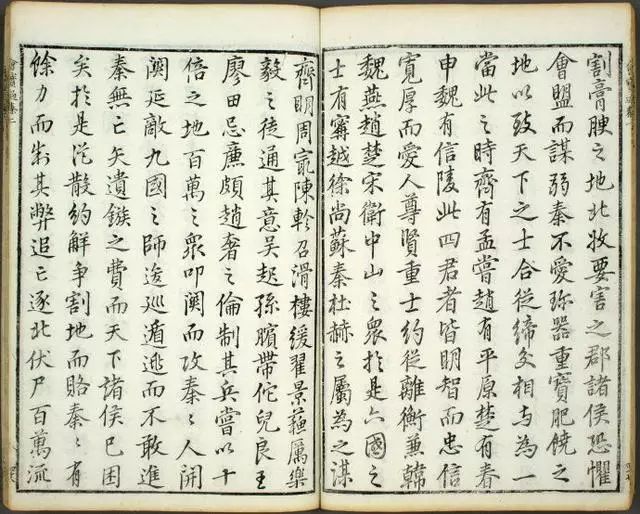 割膏腴之地北收要害之郡諸侯恐懼
會盟而謀弱秦不愛珎器重寶肥饒之
地以致天下之士合從締交相与為一
當此之時齊有孟嘗趙有平原楚有春
申魏有信陵此四君者皆明智而忠信
寛厚而愛人尊賢重士約從離衡兼韓
魏燕趙楚宋衛中山之衆於是六國之
士有甯越徐尚蘇秦杜赫之屬為之謀
齊明周冣陳軫召滑樓緩翟景蘓厲樂
毅之徒通其意吴起孫臏帶佗兒良王
廖田忌廉頗趙奢之倫制其兵嘗以十
倍之地百萬之衆叩関而攻秦〻人開
関延敵九國之師逡巡遁逃而不敢進
秦無亡矢遺鏃之費而天下諸侯已困
矣於是從散約解争割地而賂秦〻有
餘力而制其弊追亡逐北伏尸百萬流